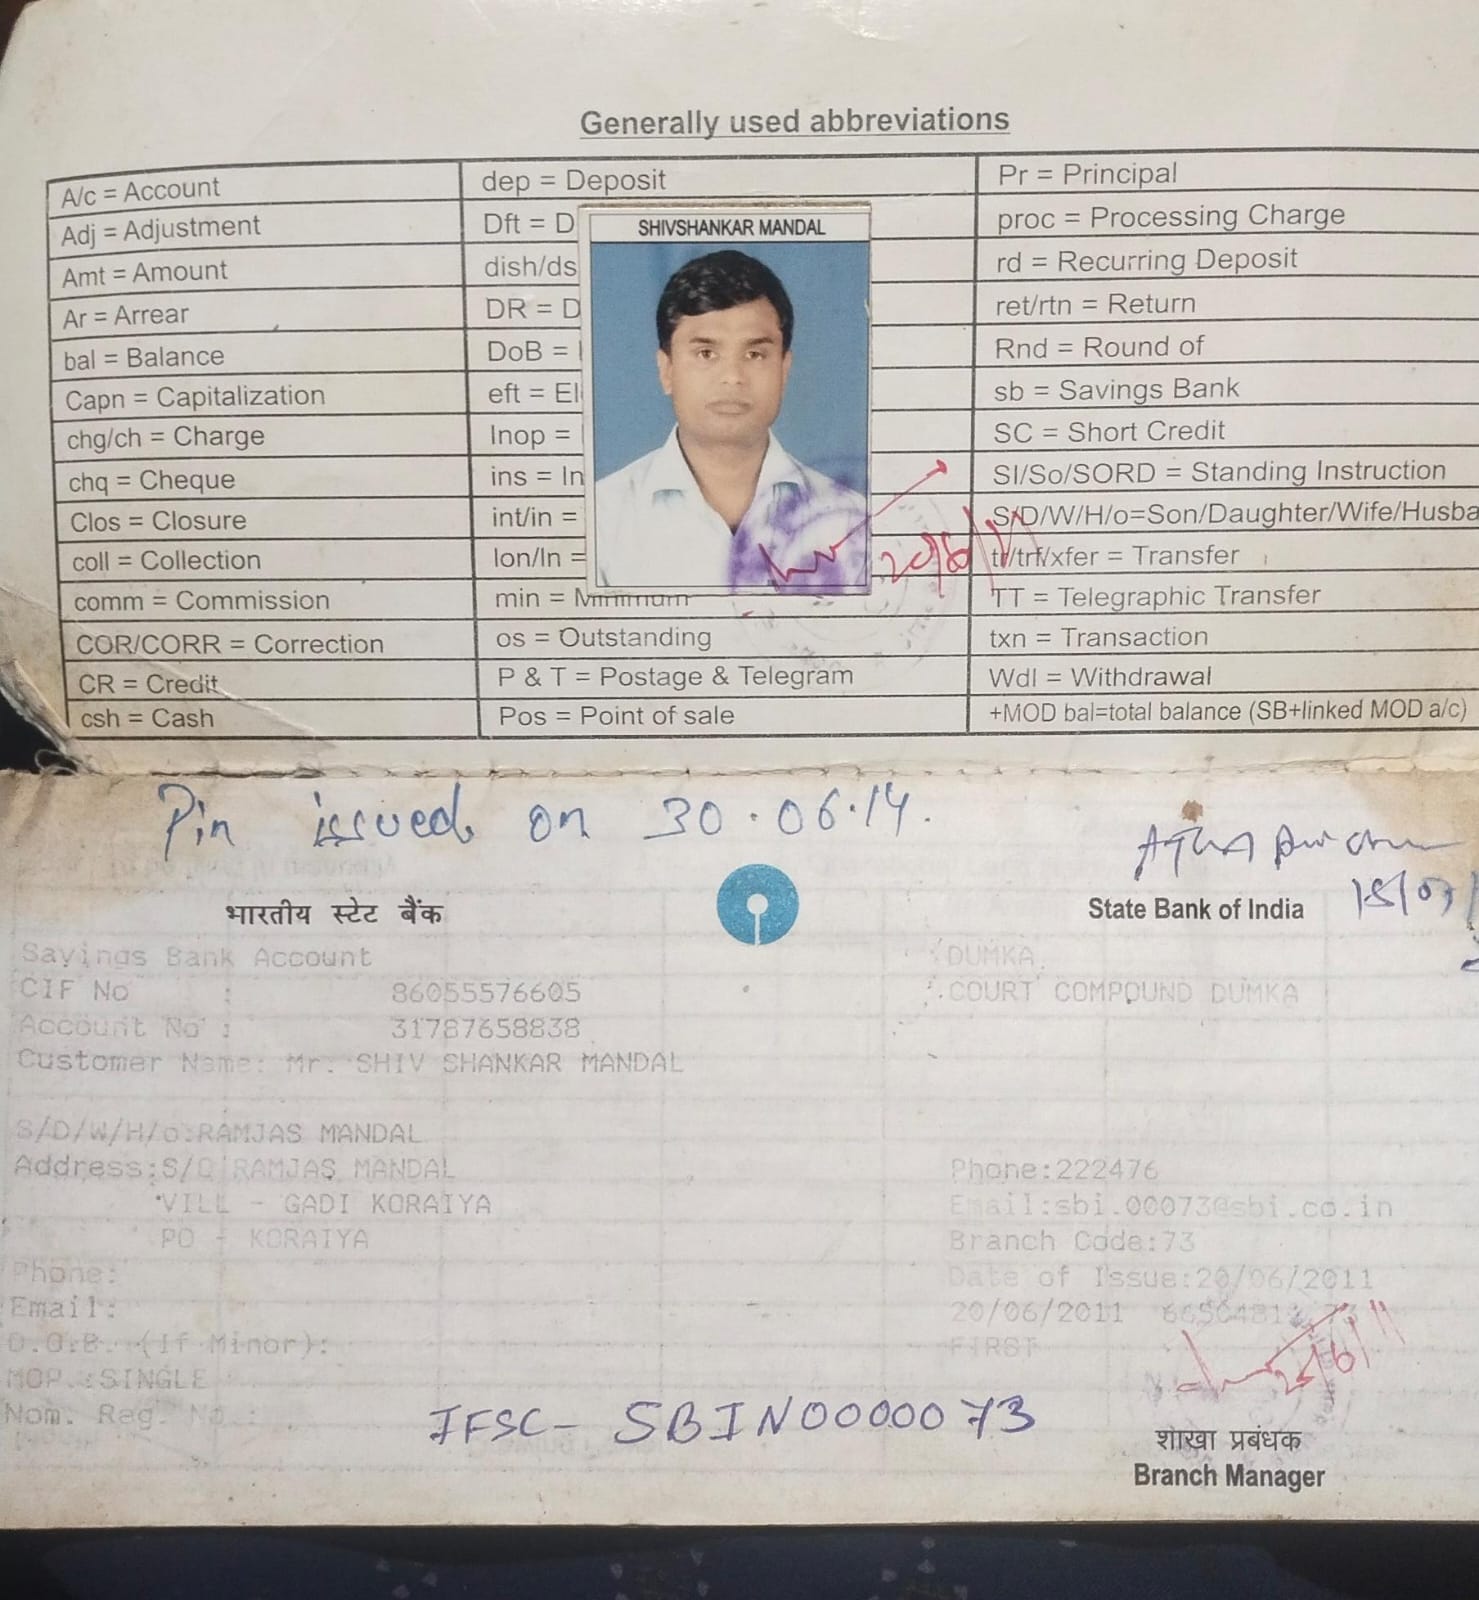 Generally used abbreviations
A/c = Account
Adj = Adjustment
Amt = Amount
Ar = Arrear
bal = Balance
Capn = Capitalization
chg/ch = Charge
chq = Cheque
Clos = Closure
coll = Collection
comm = Commission
COR/CORR = Correction
CR = Credit
csh = Cash
dep = Deposit
Dft = D
dish/ds
DR = D
DoB =
eft = El
Inop =
ins = In
int/in =
lon/ln =
min = Minimum
os = Outstanding
P & T = Postage & Telegram
Pos = Point of sale
SHIVSHANKAR MANDAL
20/6/11
Pr = Principal
proc = Processing Charge
rd = Recurring Deposit
ret/rtn = Return
Rnd = Round of
sb = Savings Bank
SC = Short Credit
SI/So/SORD = Standing Instruction
S/D/W/H/o=Son/Daughter/Wife/Husba
tr/trf/xfer = Transfer
TT = Telegraphic Transfer
txn = Transaction
Wdl = Withdrawal
+MOD bal=total balance (SB+linked MOD a/c)
Pin issued on 30.06.14.
भारतीय स्टेट बैंक
State Bank of India
Savings Bank Account
CIF No : 86055576605
Account No : 31787658838
Customer Name: Mr. SHIV SHANKAR MANDAL
S/D/W/H/o:RAMJAS MANDAL
Address:S/O RAMJAS MANDAL
VILL - GADI KORAIYA
PO - KORAIYA
Phone:
Email:
D.O.B. (If Minor):
MOP.:SINGLE
Nom. Reg. No.:
DUMKA
COURT COMPOUND DUMKA
Phone:222476
Email:sbi.00073@sbi.co.in
Branch Code:73
Date of Issue:20/06/2011
20/06/2011
FIRST
IFSC- SBIN0000073
शाखा प्रबंधक
Branch Manager